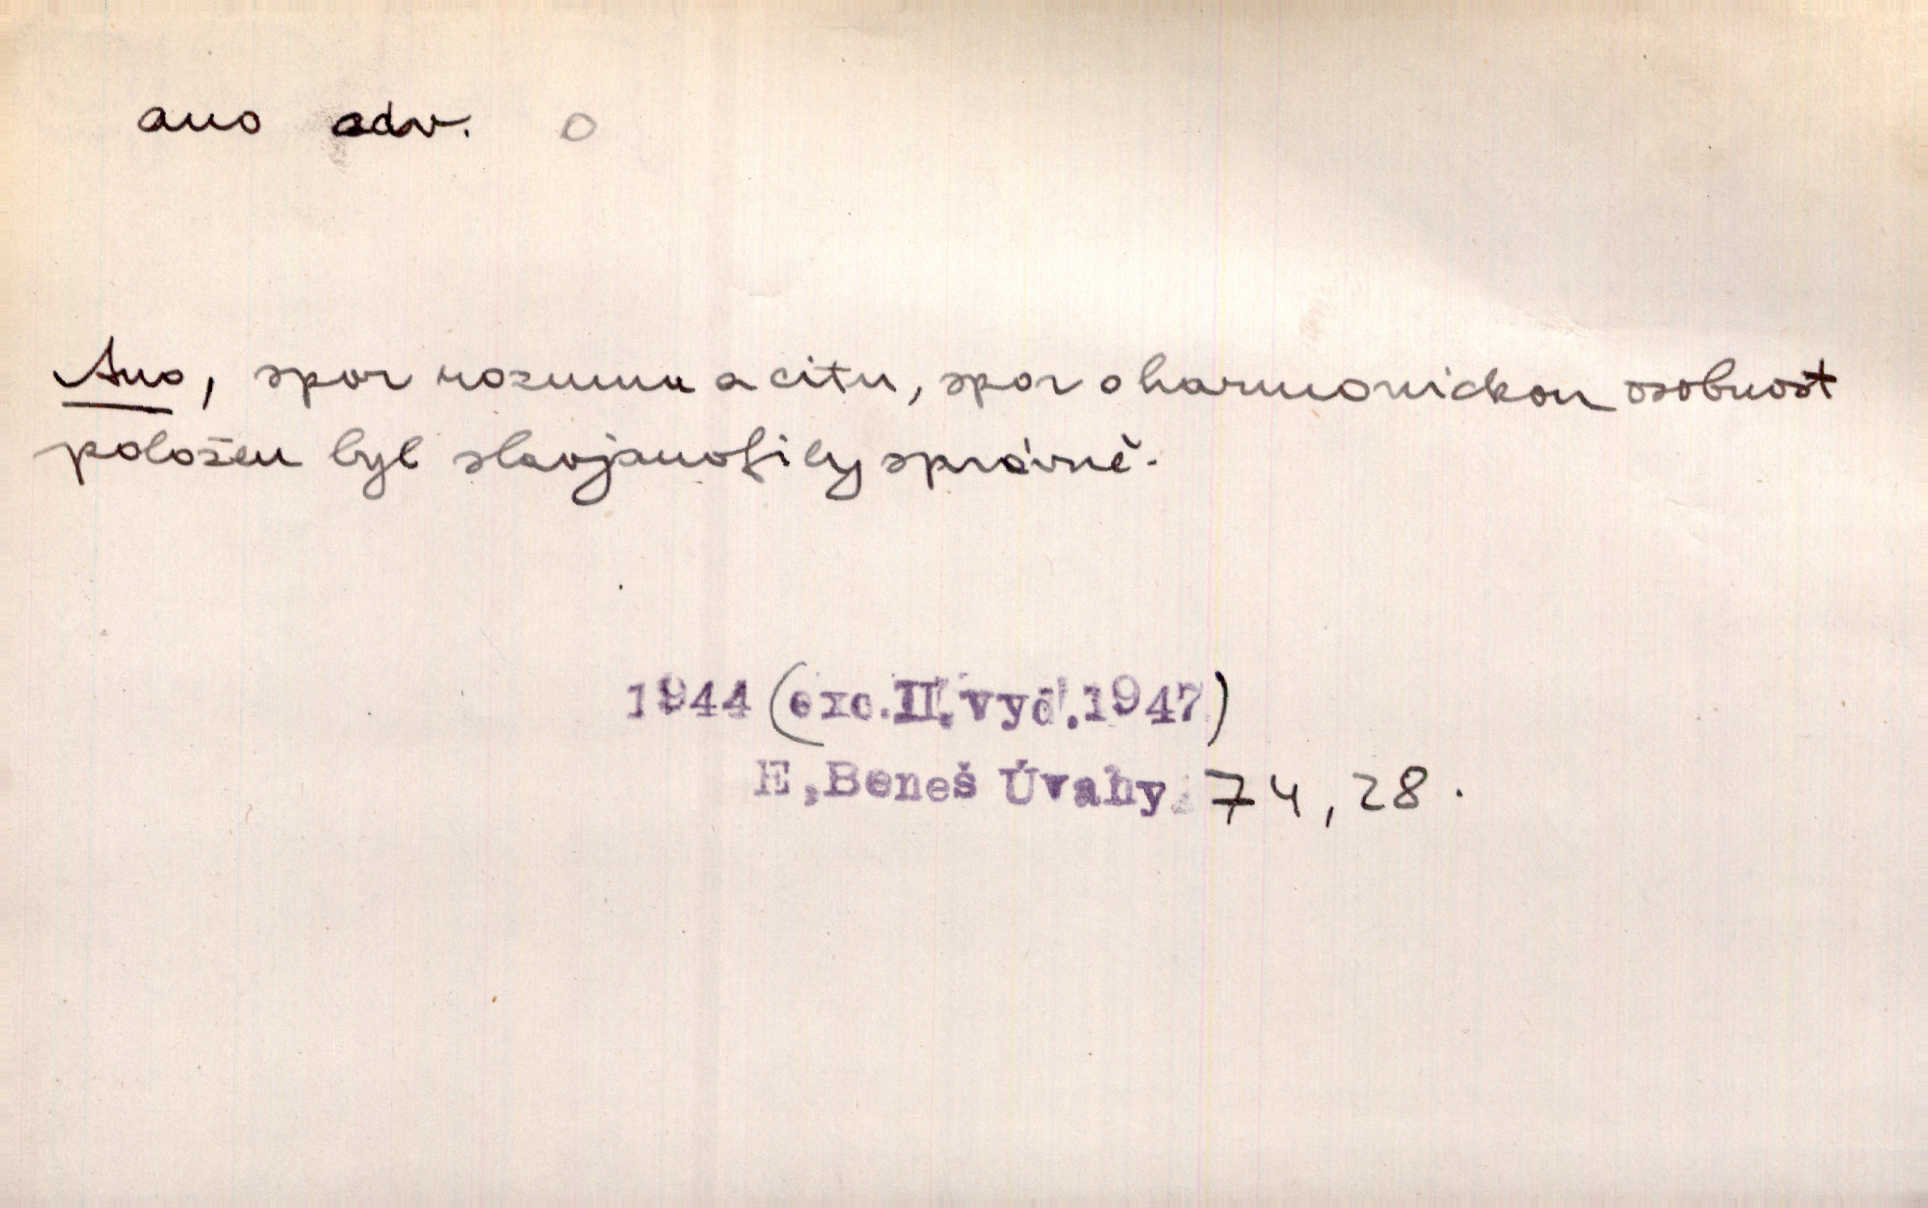 ano adv. o
Ano, spor rozumu a citu, spor o harmonickou osobnost
položen byl slavjanofily správně.
1944 (exc.II.vyd.1947)
E,Beneš Úvahy 74,28.